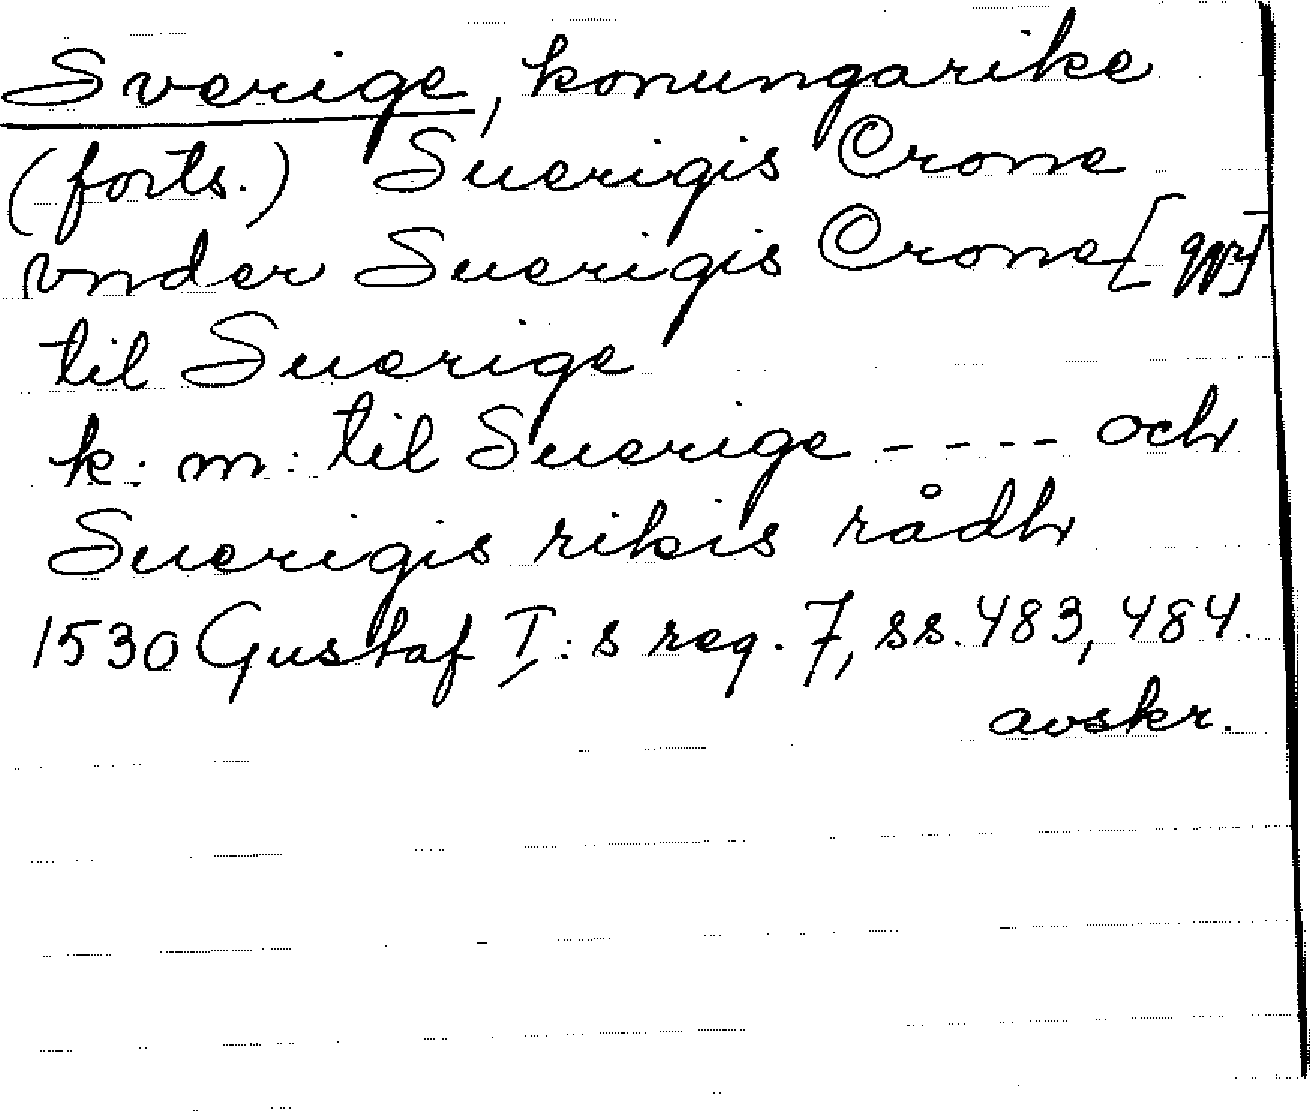 Sverige, konungarike
(forts.) Suerigis Crone
vnder Suerigis Crone [ggr]
til Suerige
k: m: til Suerige - - - - och
Suerigis rikis rådh
1530 Gustaf I:s reg. 7, ss. 483, 484.
avskr.